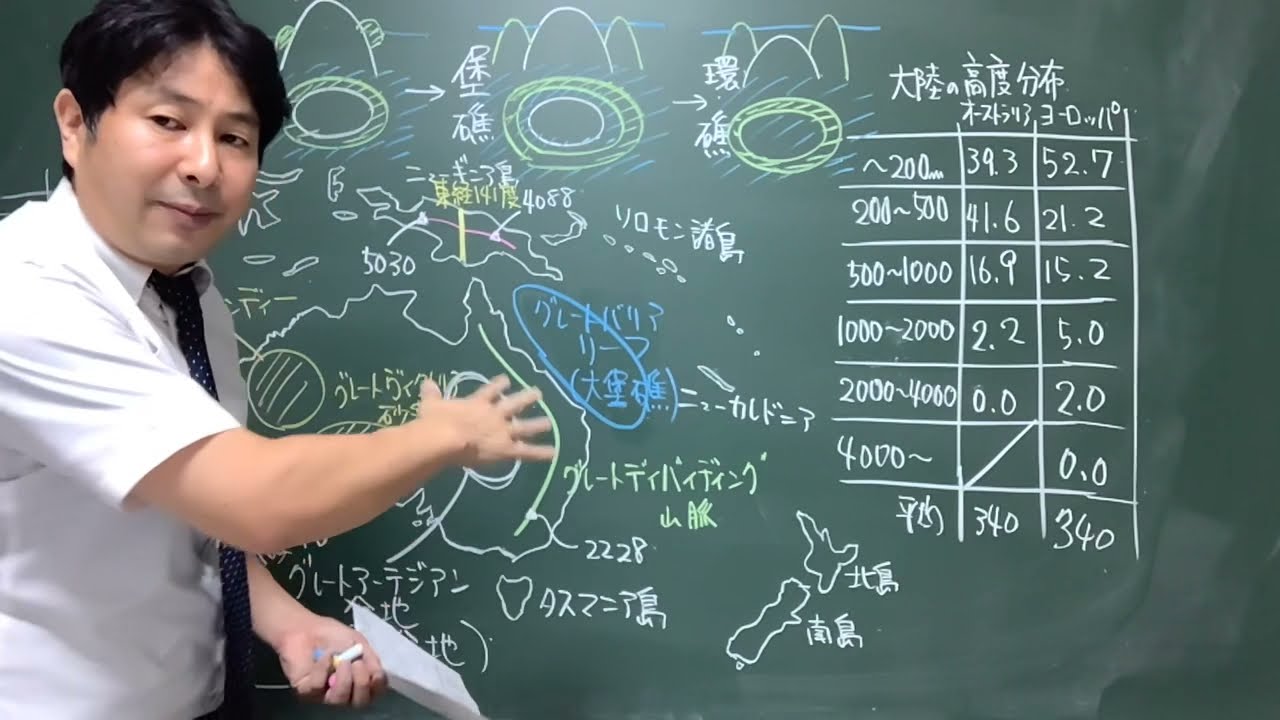 堡礁
環礁
大陸の高度分布
オーストラリア ヨーロッパ
〜200m 39.3 52.7
200〜500 41.6 21.2
500〜1000 16.9 15.2
1000〜2000 2.2 5.0
2000〜4000 0.0 2.0
4000〜 0.0
平均 340 340
ニューギニア島
東経141度
4088
5030
ソロモン諸島
ンディー
グレートバリア
リーフ
(大堡礁)
グレートヴィクトリア
ニューカルドニア
グレートディバイディング
山脈
2228
グレートアーテジアン
盆地
盆地)
タスマニア島
北島
南島